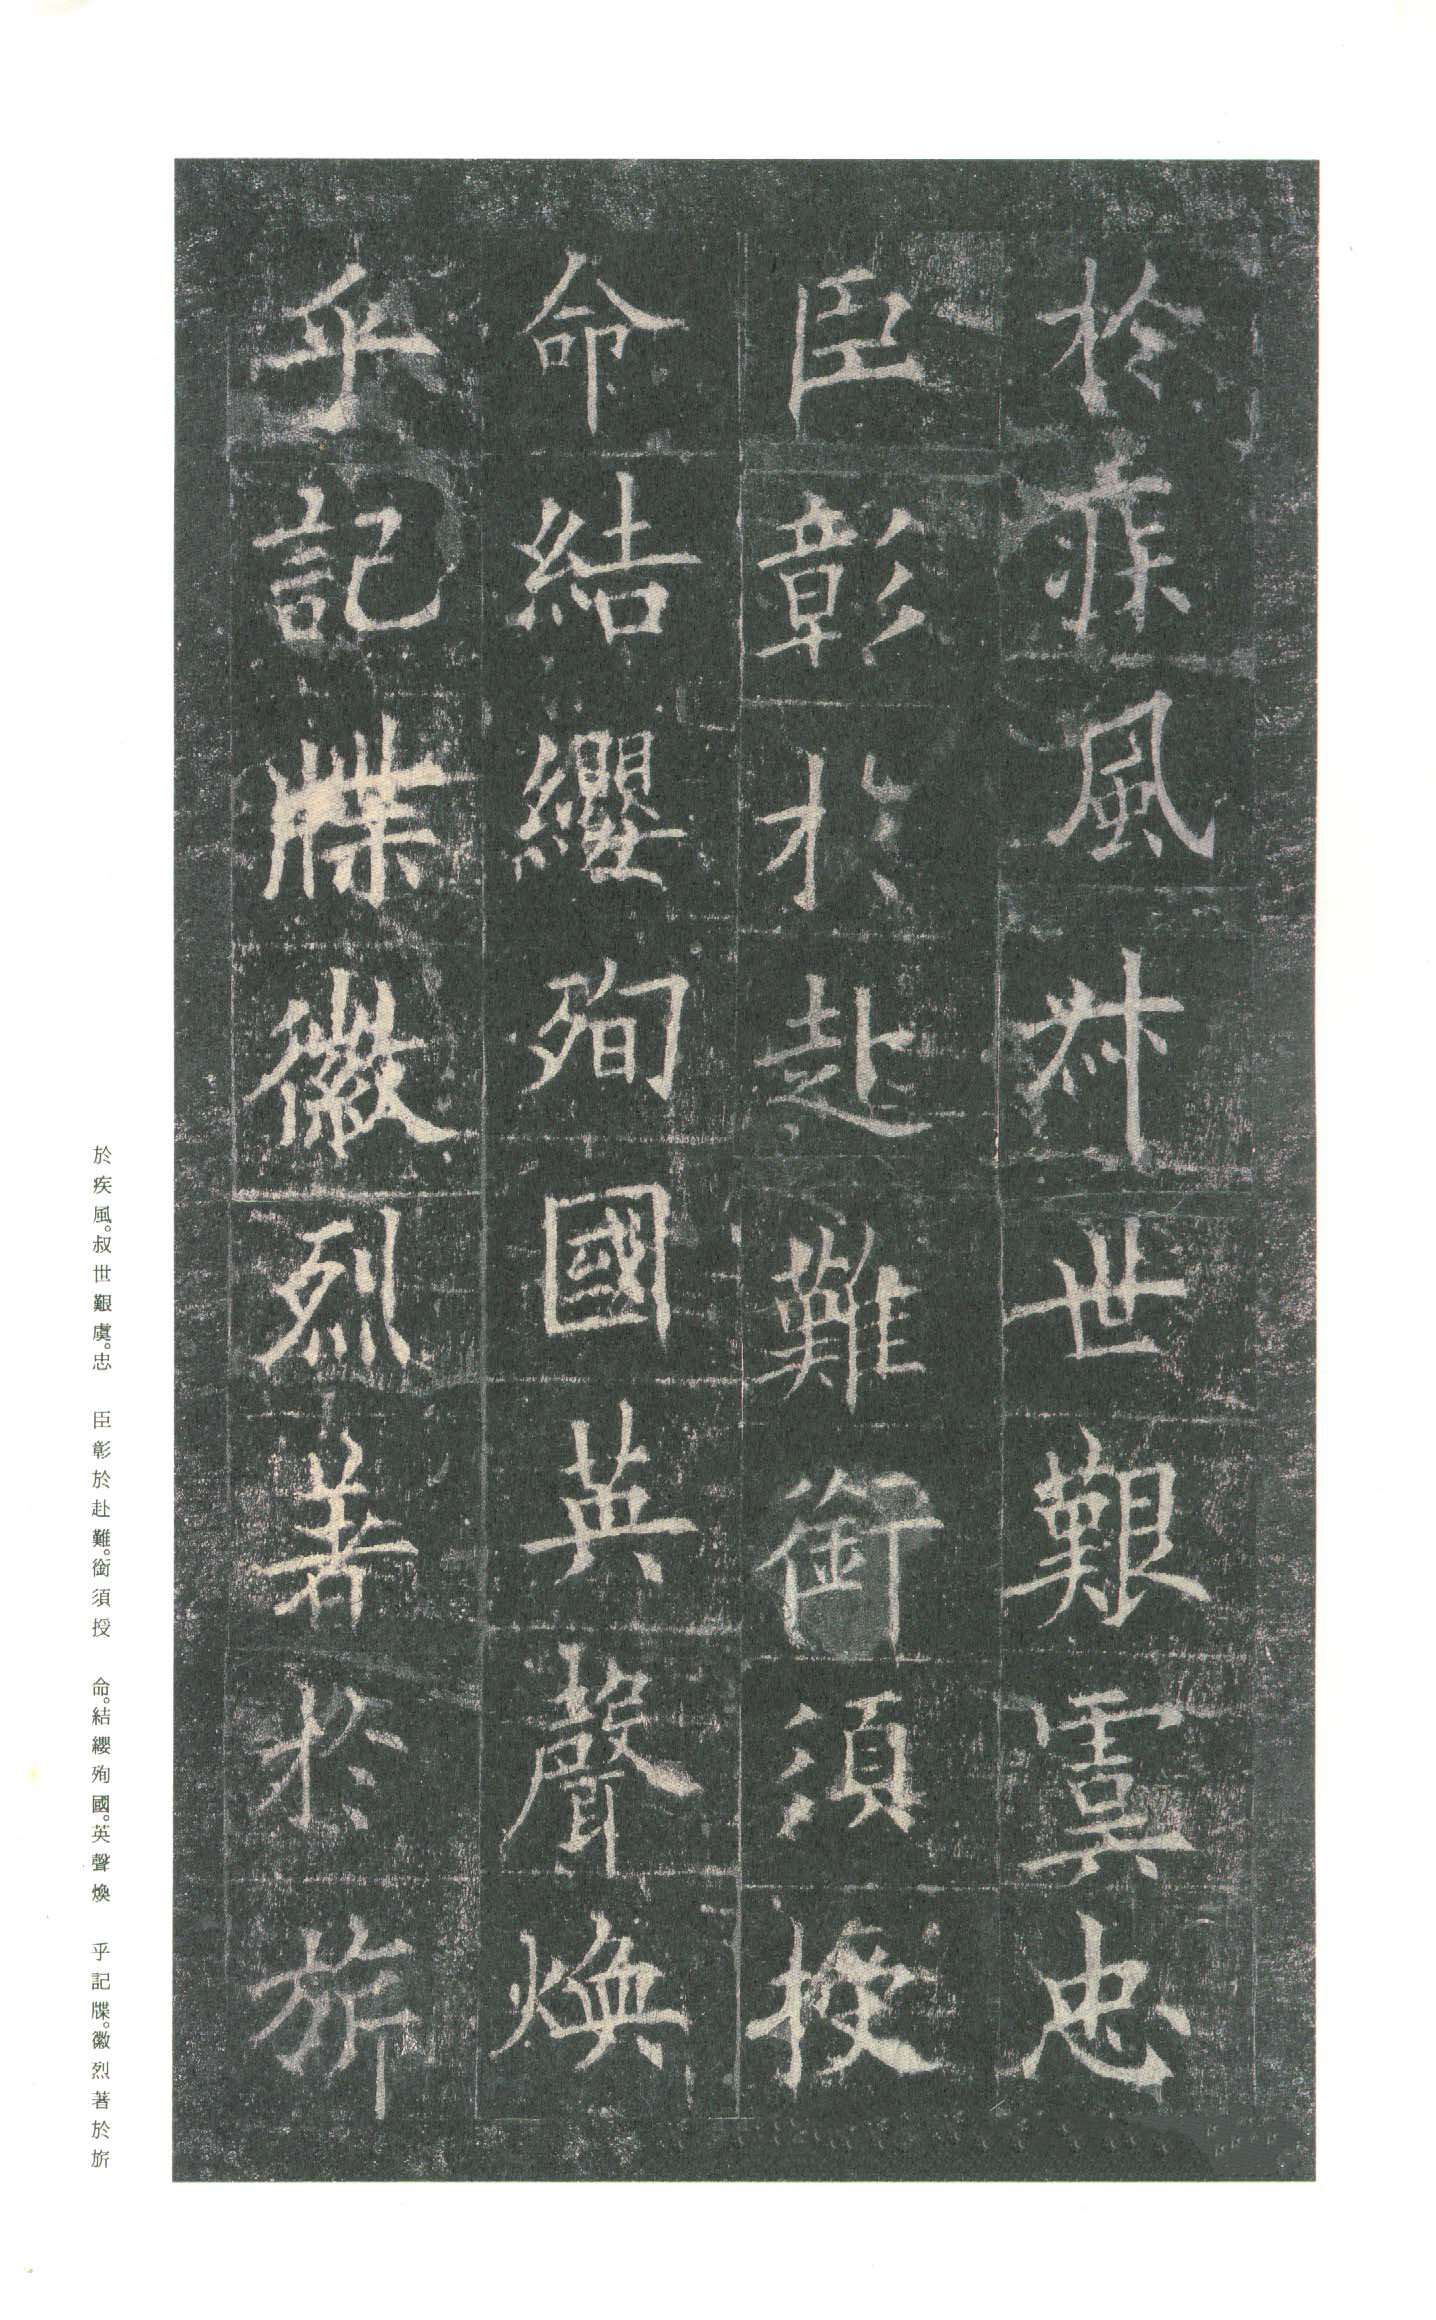 於疾風叔世艱虞忠
臣彰於赴難銜須授
命結纓殉國英聲煥
乎記牒徽烈著於旂
於疾風。叔世艱虞。忠　臣彰於赴難。銜須授　命。結纓殉國。英聲煥　乎記牒。徽烈著於旂